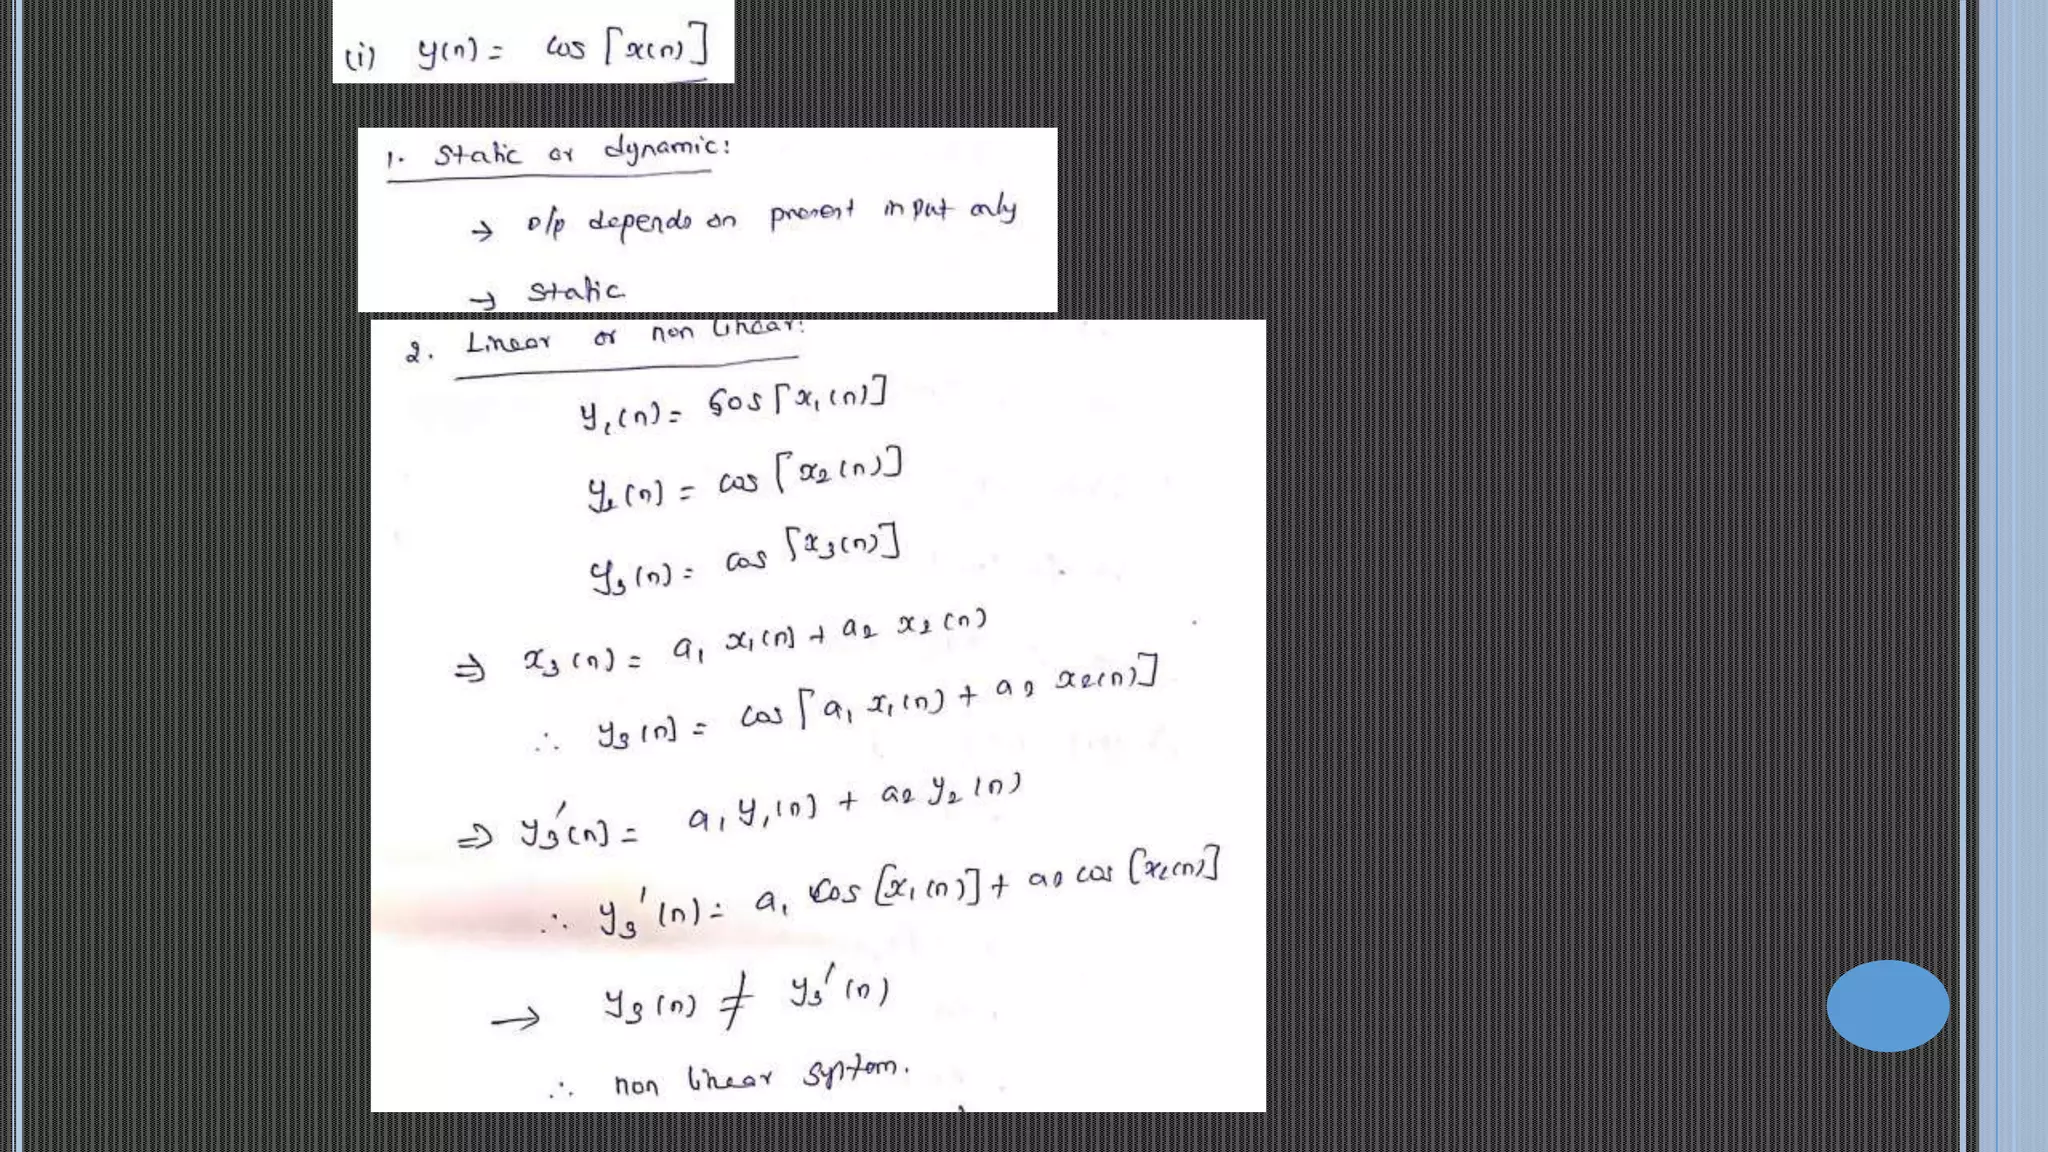 (i) y(n) = cos [x(n)]
1. Static or dynamic:
→ o/p depends on present input only
→ static
2. Linear or non linear:
y₁(n) = cos [x₁(n)]
y₂(n) = cos [x₂(n)]
y₃(n) = cos [x₃(n)]
⇒ x₃(n) = a₁ x₁(n) + a₂ x₂(n)
∴ y₃(n) = cos [a₁ x₁(n) + a₂ x₂(n)]
⇒ y₃'(n) = a₁ y₁(n) + a₂ y₂(n)
∴ y₃'(n) = a₁ cos [x₁(n)] + a₂ cos [x₂(n)]
→ y₃(n) ≠ y₃'(n)
∴ non linear system.